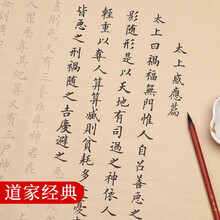 太上感應篇
太上曰禍福無門惟人自召善惡之
影隨形是以天地有司過之神依人
輕重以奪人算算減則貧耗多
皆惡之刑禍隨之吉慶避之
道家经典